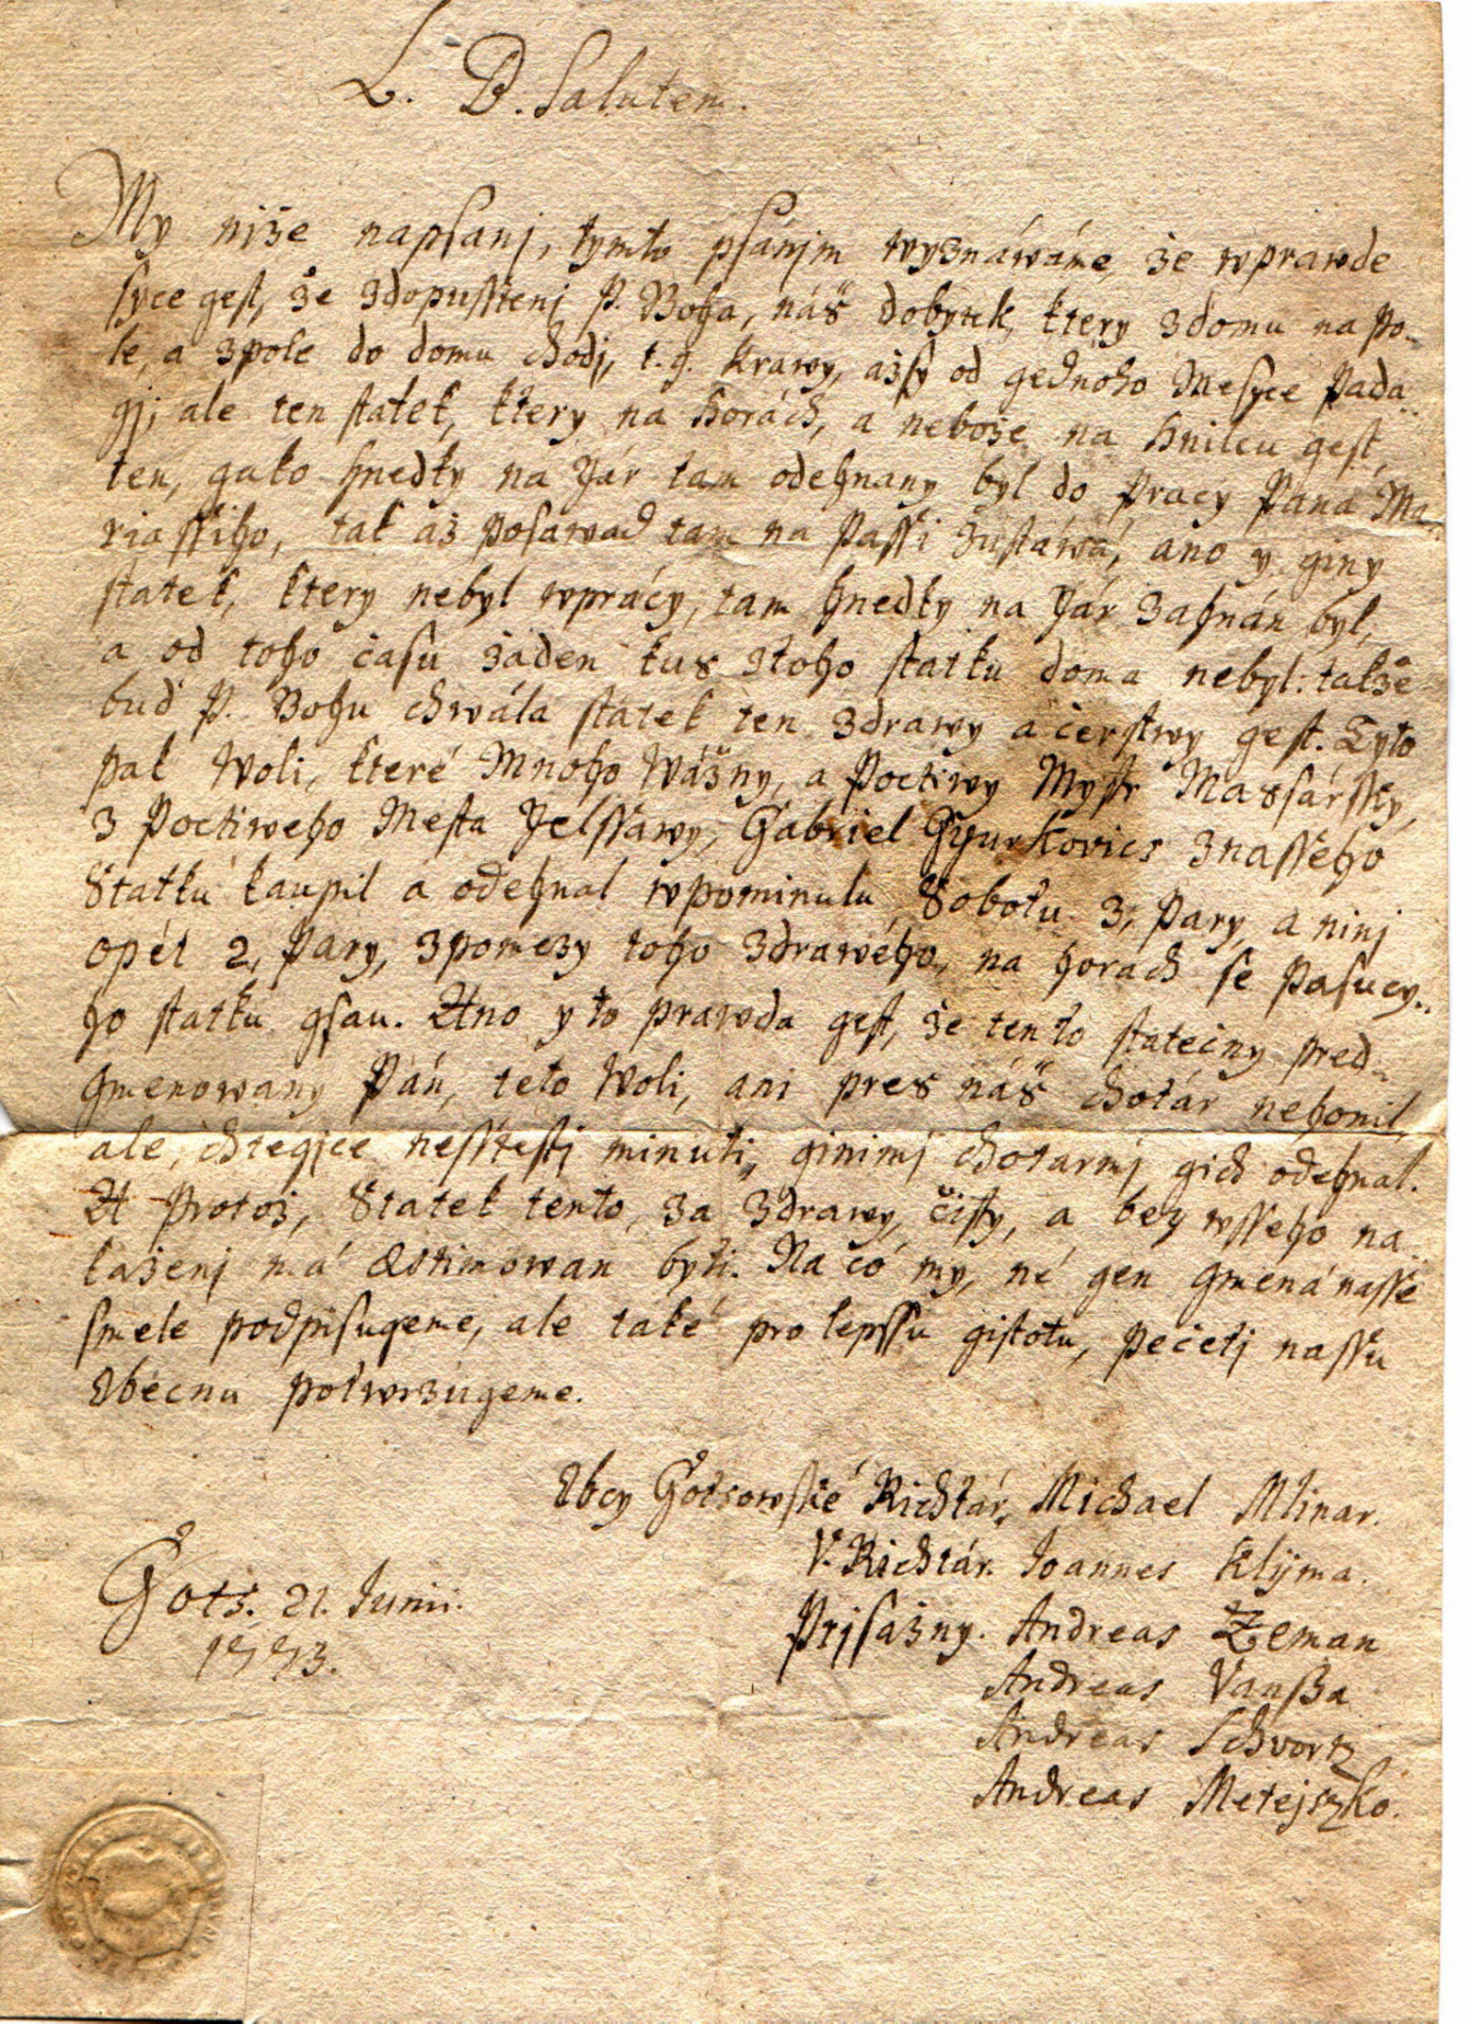 L. D. Salutem.
My njže napsanj, tymto psánjm wyznáwáme, že wprawde
syce gest, že zdopusstenj P. Boha, náš dobytek, ktery zdomu na po-
le, a zpole do domu chodj, t. g. Krawy, ažsy od gednoho Mesyce pada-
gj; ale ten statek, ktery na horách, a neboże na hnilcu gest,
ten, gako hnedky na Jár tam odehnany byl do pracy Pana Ma-
riassiho, tak až posawad tam na passi zustáwá, ano y giny
statek, ktery nebyl wprácy, tam hnedky na Jár zahnán byl,
a od toho času žáden kus ztoho statku doma nebyl: takže
bud P. Bohu chwála statek ten zdrawy a čerstwy gest. Tyto
pak Woli, které Mnoho Wážny, a Poctiwy Mystr Massársky,
z Poctiweho Mesta Jelssawy, Gabriel Gyurkovics znasseho
Statku kaupil a odehnal wpominulu Sobotu 3, Pary, a ninj
opét 2, Pary, zpomezy toho zdrawého, na horach se pasucy-
ho statku gsau. Ano y to prawda gest, že tento statečny pred-
gmenowany Pán, teto Woli, ani pres náš chotár nehonil,
ale, chtegjce nesstestj minuti, ginimj chotarmj gich odehnal.
A Protož, Statek tento, za zdrawy, čisty, a bez wsseho na-
kaženj má æstimowan byti. Na čo my, né gen gména nasse
smele podpisugeme, ale také pro lepssu gistotu, pečetj nassu
Obecnu potwrzugeme.
Obcy Gotsowské Richtár, Michael Mlinar.
V. Richtár. Joannes Klijma.
Gots. 21. Junii.
1773.
Prjsažny. Andreas Zeman
Andreas Vansza
Andreas Schvortz
Andreas Metejszko.